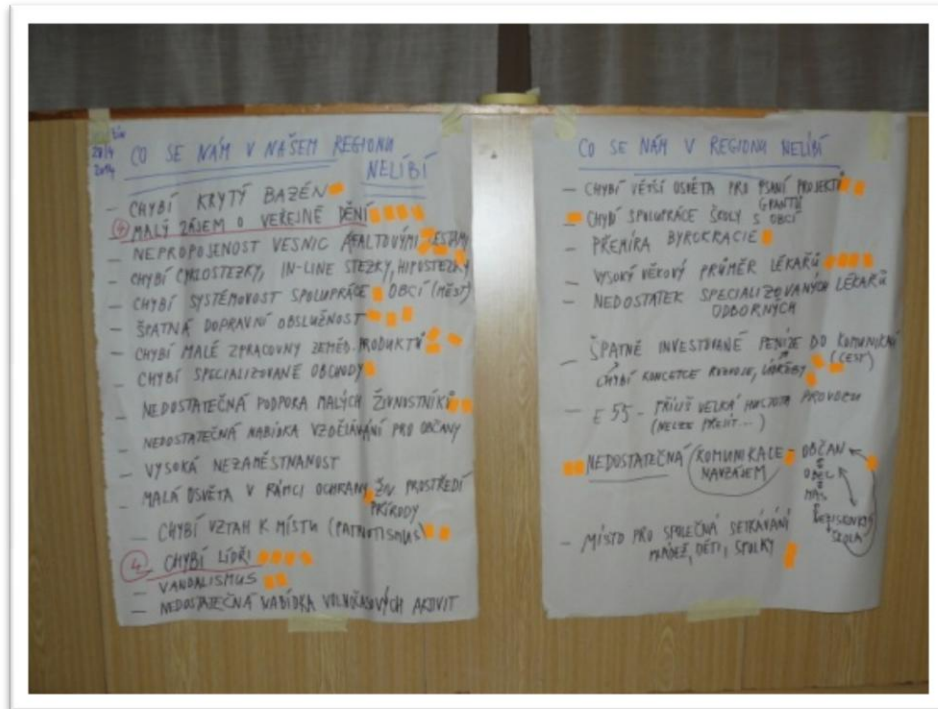 2014
CO SE NÁM V NAŠEM REGIONU
NELÍBÍ
- CHYBÍ KRYTÝ BAZÉN
④ MALÝ ZÁJEM O VEŘEJNÉ DĚNÍ
- NEPROPOJENOST VESNIC CESTAMI
- CHYBÍ CYKLOSTEZKY, IN-LINE STEZKY, HIPOSTEZKY
- CHYBÍ SYSTÉMOVOST SPOLUPRÁCE OBCÍ (MĚST)
- ŠPATNÁ DOPRAVNÍ OBSLUŽNOST
- CHYBÍ MALÉ ZPRACOVNY ZEMĚD. PRODUKTŮ
- CHYBÍ SPECIALIZOVANÉ OBCHODY
- NEDOSTATEČNÁ PODPORA MALÝCH ŽIVNOSTNÍKŮ
- NEDOSTATEČNÁ NABÍDKA VZDĚLÁVÁNÍ PRO OBČANY
- VYSOKÁ NEZAMĚSTNANOST
- MALÁ OSVĚTA V RÁMCI OCHRANY ŽIV. PROSTŘEDÍ
PŘÍRODY
- CHYBÍ VZTAH K MÍSTU (PATRIOTISMUS)
④ CHYBÍ LÍDŘI
- VANDALISMUS
- NEDOSTATEČNÁ NABÍDKA VOLNOČASOVÝCH AKTIVIT
CO SE NÁM V REGIONU NELÍBÍ
- CHYBÍ VĚTŠÍ OSVĚTA PRO PSANÍ PROJEKTŮ
GRANTŮ
CHYBÍ SPOLUPRÁCE ŠKOLY S OBCÍ
- PŘEMÍRA BYROKRACIE
- VYSOKÝ VĚKOVÝ PRŮMĚR LÉKAŘŮ
- NEDOSTATEK SPECIALIZOVANÝCH LÉKAŘŮ
ODBORNÝCH
- ŠPATNĚ INVESTOVANÉ PENÍZE DO KOMUNIKACÍ
(CEST)
CHYBÍ KONCEPCE ROZVOJE, ÚDRŽBY
- E 55 - PŘÍLIŠ VELKÁ HUSTOTA PROVOZU
(NELZE PŘEJÍT...)
NEDOSTATEČNÁ KOMUNIKACE - OBČAN
NAVZÁJEM
OBEC
MAS
NEZISKOVKY
ŠKOLA
- MÍSTO PRO SPOLEČNÁ SETKÁVÁNÍ
MLÁDEŽ, DĚTI, SPOLKY